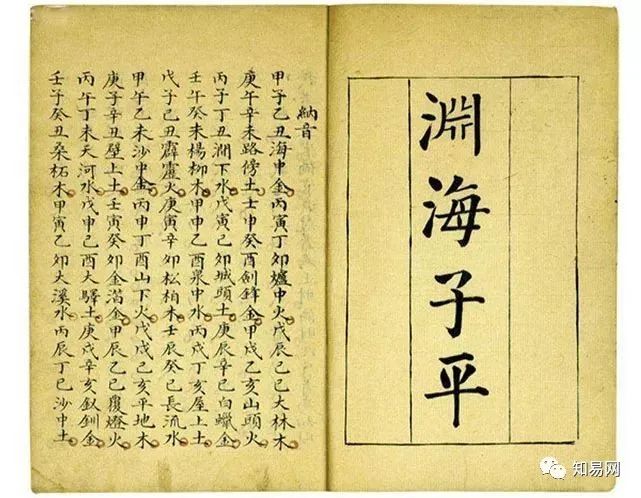 淵海子平
納音
甲子乙丑海中金丙寅丁卯爐中火戊辰己巳大林木
庚午辛未路傍土壬申癸酉劍鋒金甲戌乙亥山頭火
丙子丁丑澗下水戊寅己卯城頭土庚辰辛巳白蠟金
壬午癸未楊柳木甲申乙酉泉中水丙戌丁亥屋上土
戊子己丑霹靂火庚寅辛卯松柏木壬辰癸巳長流水
甲午乙未沙中金丙申丁酉山下火戊戌己亥平地木
庚子辛丑壁上土壬寅癸卯金萡金甲辰乙巳覆燈火
丙午丁未天河水戊申己酉大驛土庚戌辛亥釵釧金
壬子癸丑桑柘木甲寅乙卯大溪水丙辰丁巳沙中土
知易网